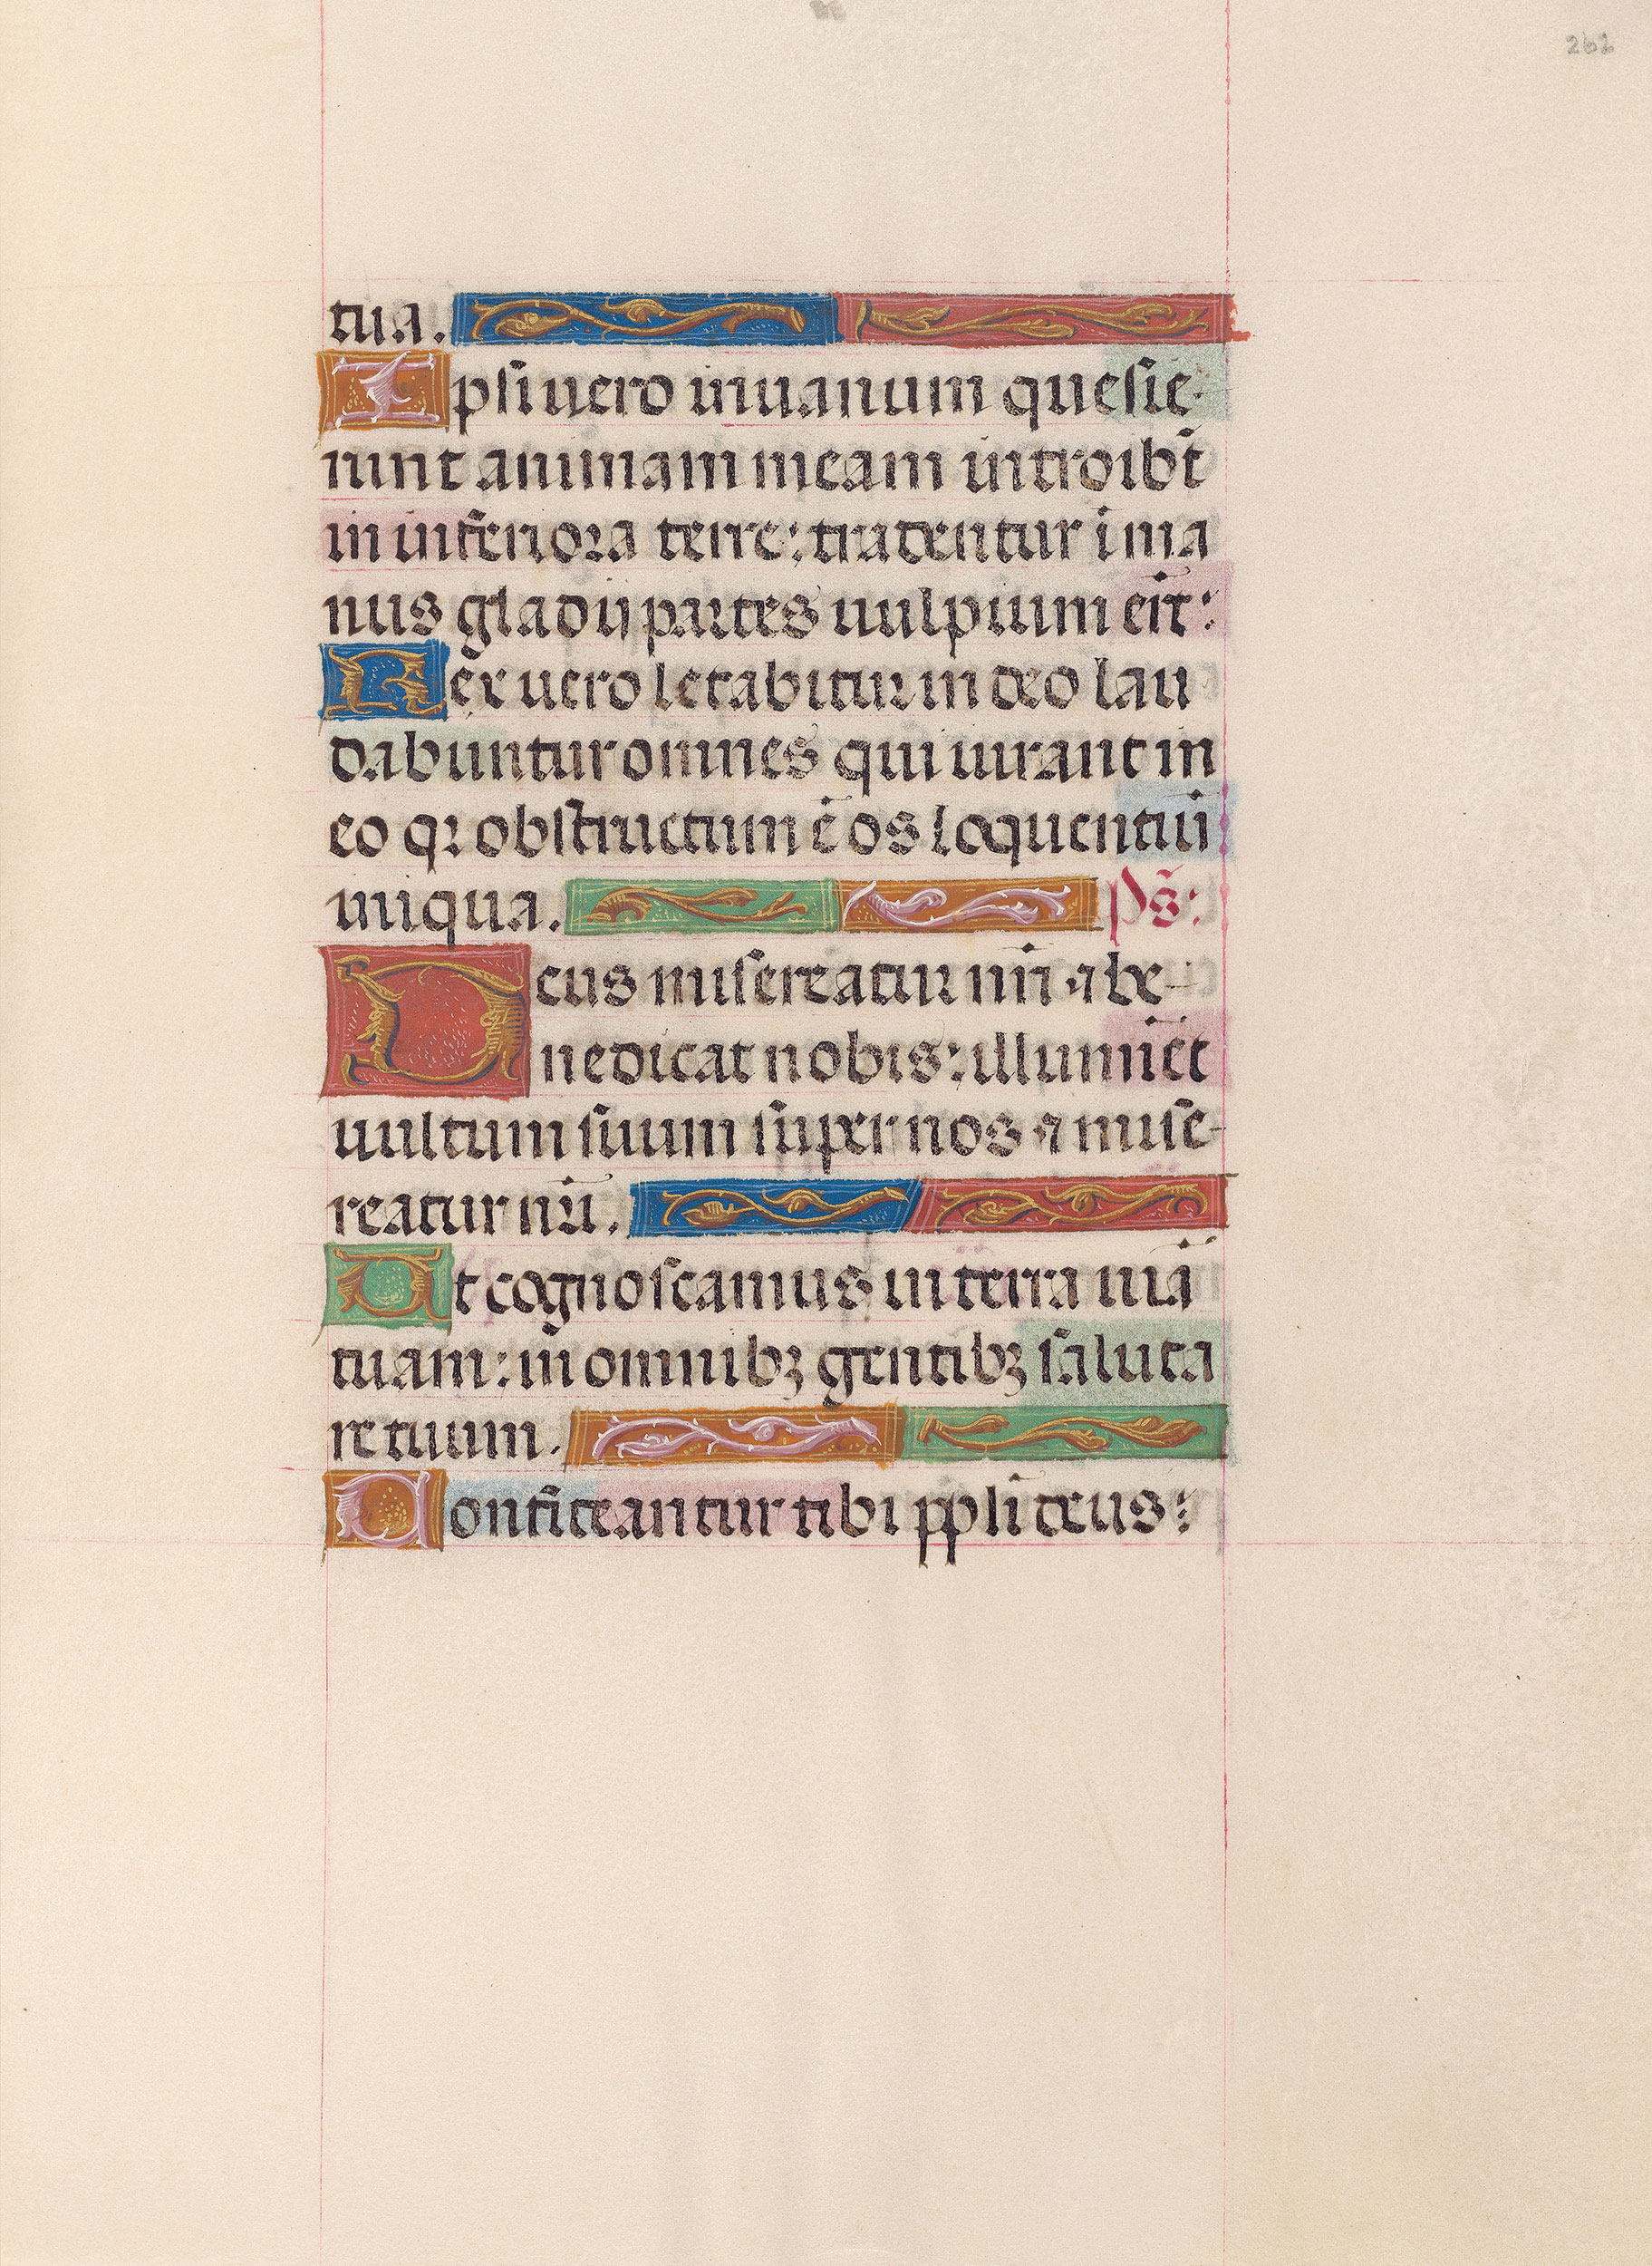 262
tua.
Ipsi uero inuanum quesie-
runt animam meam introibt̄
in inferiora terre: tradentur ī ma
nus gladij partes uulpium ert̄:
Rex uero letabitur in deo lau
dabuntur omnes qui iurant in
eo qꝛ obstructum ē os loquentiū
iniqua. Ps̄:
Deus misereatur nr̄i · ⁊ be-
nedicat nobis: illumīet
uultum suum super nos · ⁊ mise-
reatur nr̄i.
Ut cognoscamus in terra uiā
tuam: in omnibꝫ gentibꝫ saluta
re tuum.
Confiteantur tibi ppl̄i deus: